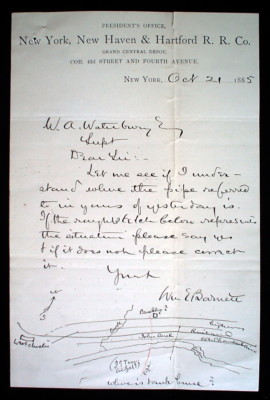 PRESIDENT'S OFFICE,
New York, New Haven & Hartford R. R. Co.
GRAND CENTRAL DEPOT,
COR. 42d STREET AND FOURTH AVENUE.
New York, Oct 21 1885
W. A. Waterbury Esq
Supt
Dear Sir:-
Let me see if I under-
stand where the pipe referred
to in yours of yesterday is.
If the rough sketch below represents
the situation please say yes
& if it does not please correct
it.
Yours
Wm E Barnett
where is tank house?